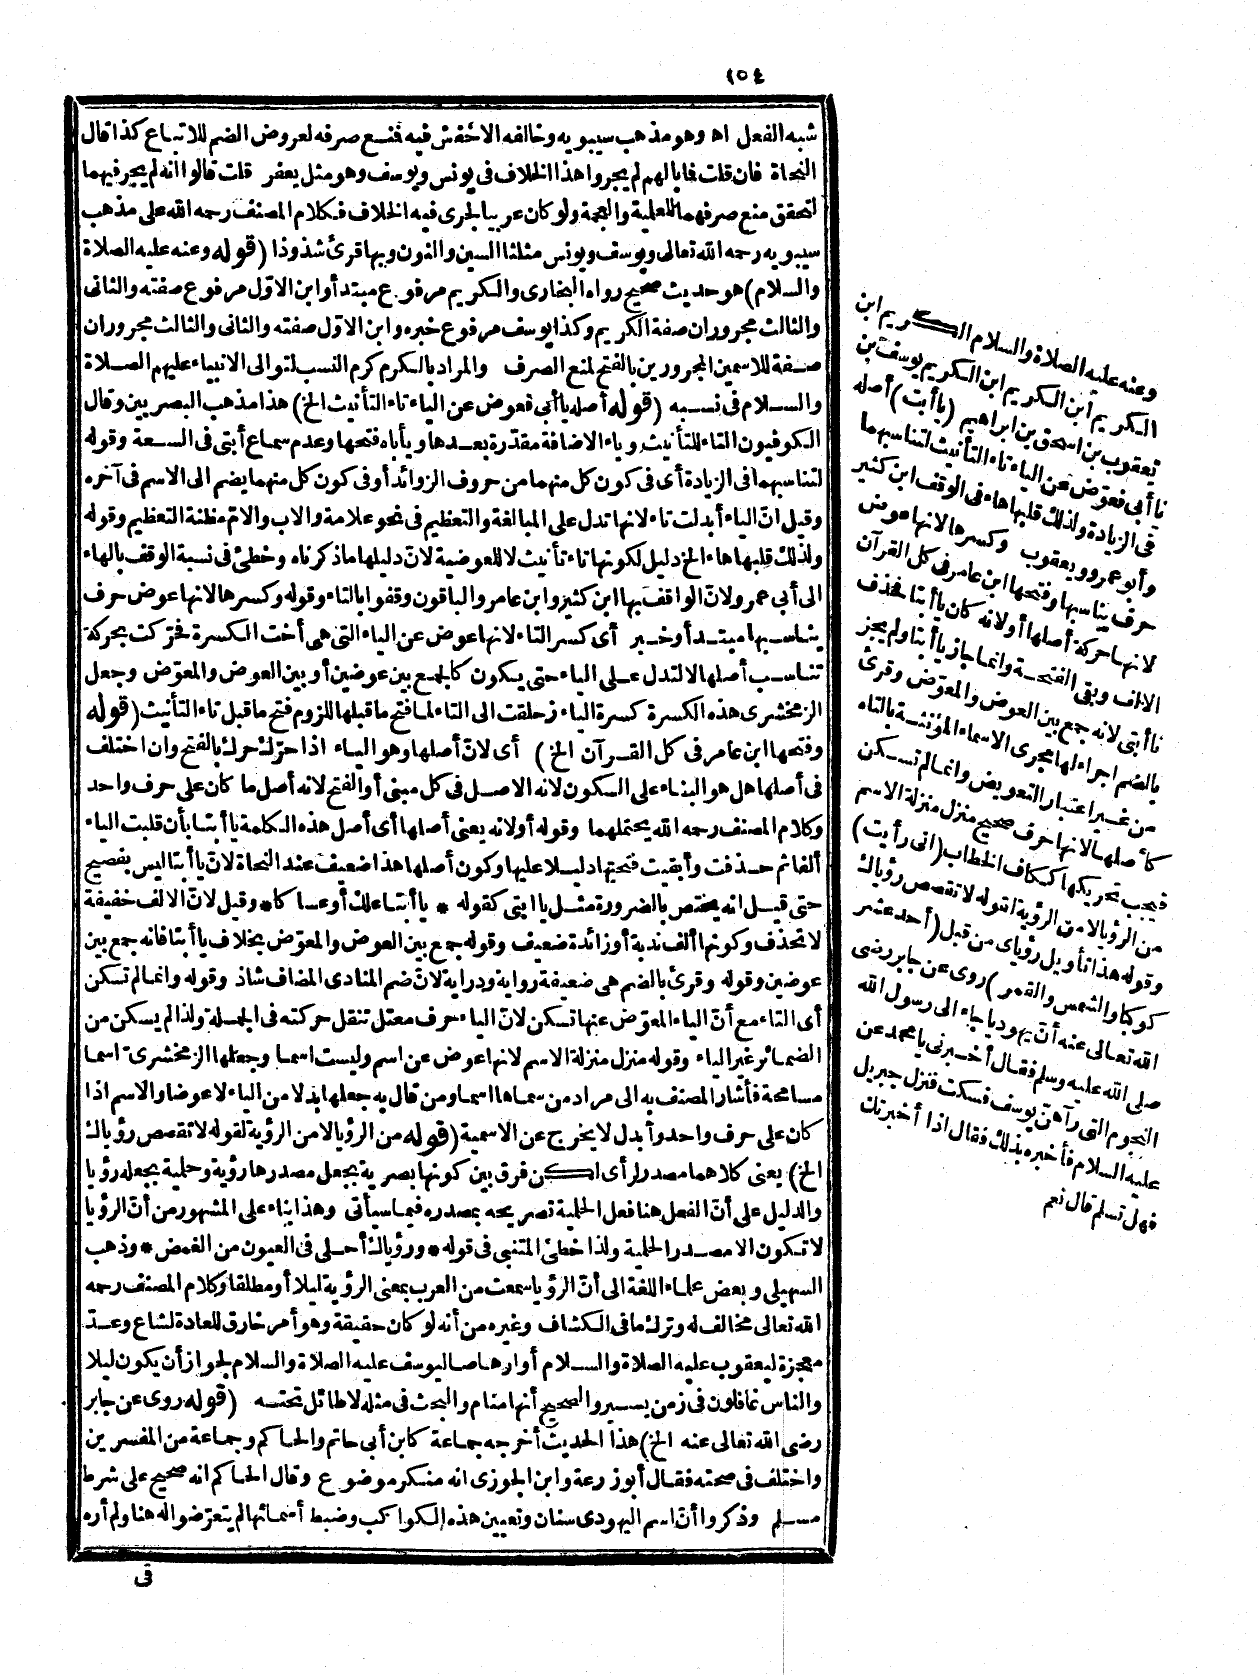 ١٥٤
شبه الفعل اه وهو مذهب سيبويه وخالفه الاخفش فيه فمنع صرفه لعروض الضم للاتباع كذا قال
النحاة فان قلت فما بالهم لم يجروا هذا الخلاف فى يونس ويوسف وهو مثل يعفر قلت قالوا انه لم يجر فيهما
لتحقق منع صرفهما للعلمية والعجمة ولو كان عربيا لجرى فيه الخلاف فكلام المصنف رحمه الله على مذهب
سيبويه رحمه الله تعالى ويوسف ويونس مثلثا السين والنون وبها قرئ شذوذا (قوله وعنه عليه الصلاة
والسلام) هو حديث صحيح رواه البخارى والكريم مرفوع مبتدأ وابن الاول مرفوع صفته والثانى
والثالث مجروران صفة الكريم وكذا يوسف مرفوع خبره وابن الاول صفته والثانى والثالث مجروران
صفة للاسمين المجرورين بالفتح لمنع الصرف والمراد بالكرم كرم النسب لتوالى الانبياء عليهم الصلاة
والسلام فى نسبه (قوله أصله يا أبى فعوض عن الياء تاء التأنيث الخ) هذا مذهب البصريين وقال
الكوفيون التاء للتأنيث وياء الاضافة مقدرة بعدها ويأباه فتحها وعدم سماع أبتى فى السعة وقوله
لتناسبهما فى الزيادة أى فى كون كل منهما من حروف الزوائد أو فى كون كل منهما يضم الى الاسم فى آخره
وقيل انّ الياء أبدلت تاء لانها تدل على المبالغة والتعظيم فى نحو علامة والاب والامّ مظنة التعظيم وقوله
ولذلك قلبها هاء الخ دليل لكونها تاء تأنيث لا للعوضية لانّ دليلها ماذكرناه وخطئ فى نسبة الوقف بالهاء
الى أبى عمرو لانّ الواقف بها ابن كثير وابن عامر والباقون وقفوا بالتاء وقوله وكسرها لانها عوض حرف
يناسبها مبتدأ وخبر أى كسر التاء لانها عوض عن الياء التى هى أخت الكسرة فحرّكت بحركة
تناسب أصلها لا لتدل على الياء حتى يكون كالجمع بين عوضين أو بين العوض والمعوّض وجعل
الزمخشرى هذه الكسرة كسرة الياء زحلقت الى التاء لما فتح ما قبلها للزوم فتح ما قبل تاء التأنيث (قوله
وفتحها ابن عامر فى كل القرآن الخ) أى لانّ أصلها وهو الياء اذا حرّك حرك بالفتح وان اختلف
فى أصلها هل هو البناء على السكون لانه الاصل فى كل مبنى أو الفتح لانه أصل ما كان على حرف واحد
وكلام المصنف رحمه الله يحتملهما وقوله أو لانه يعنى أصلها أى أصل هذه الكلمة يا أبتا بأن قلبت الياء
ألفا ثم حذفت وأبقيت فتحتها دليلا عليها وكون أصلها هذا ضعيف عند النحاة لانّ يا أبتا ليس بفصيح
حتى قيل انه يختص بالضرورة مثل يا ابتى كقوله * يا أبتا علك أو عساكا * وقيل لانّ الالف خفيفة
لا تحذف وكونها ألف ندبة أو زائدة ضعيف وقوله جمع بين العوض والمعوّض بخلاف يا أبتا فانه جمع بين
عوضين وقوله وقرئ بالضم هى ضعيفة رواية ودراية لانّ ضم المنادى المضاف شاذ وقوله وانما لم تسكن
أى التاء مع أنّ الياء المعوّض عنها تسكن لانّ الياء حرف معتل تنقل حركته فى الجملة ولذا لم يسكن من
الضمائر غير الياء وقوله منزل منزلة الاسم لانها عوض عن اسم وليست اسما وجعلها الزمخشرىّ اسما
مسامحة فأشار المصنف به الى مراد من سماها اسما ومن قال به جعلها بدلا من الياء لا عوضا والاسم اذا
كان على حرف واحد وأبدل لا يخرج عن الاسمية (قوله من الرؤيا لا من الرؤية لقوله لا تقصص رؤياك
الخ) يعنى كلاهما مصدر لرأى لكن فرق بين كونها بصرية بجعل مصدرها رؤية وحلمية بجعله رؤيا
والدليل على أنّ الفعل هنا فعل الحلمية تصريحه بمصدره فيما سيأتى وهذا بناء على المشهور من أنّ الرؤيا
لا تكون الا مصدرا لحلمية ولذا خطئ المتنبى فى قوله * ورؤياك أحلى فى العيون من الغمض * وذهب
السهيلى وبعض علماء اللغة الى أنّ الرؤيا سمعت من العرب بمعنى الرؤية ليلا أو مطلقا وكلام المصنف رحمه
الله تعالى مخالف له وترك ما فى الكشاف وغيره من أنه لو كان حقيقة وهو أمر خارق للعادة لشاع وعدّ
معجزة ليعقوب عليه الصلاة والسلام أو ارهاصا ليوسف عليه الصلاة والسلام لجواز أن يكون ليلا
والناس غافلون فى زمن يسير والصحيح أنها منام والبحث فى مثله لا طائل تحته (قوله روى عن جابر
رضى الله تعالى عنه الخ) هذا الحديث أخرجه جماعة كابن أبى حاتم والحاكم وجماعة من المفسرين
واختلف فى صحته فقال أبو زرعة وابن الجوزى انه منكر موضوع وقال الحاكم انه صحيح على شرط
مسلم وذكروا أنّ اسم اليهودى سنان وتعيين هذه الكواكب وضبط أسمائها لم يتعرّضوا له هنا ولم أره
فى
وعنه عليه الصلاة والسلام الكريم ابن
الكريم ابن الكريم ابن الكريم يوسف بن
يعقوب بن اسحق بن ابراهيم (يا أبت) أصله
يا أبى فعوّض عن الياء تاء التأنيث لتناسبهما
فى الزيادة ولذلك قلبها هاء فى الوقف ابن كثير
وأبو عمرو ويعقوب وكسرها لانها عوض
حرف يناسبها وفتحها ابن عامر فى كل القرآن
لانها حركة أصلها أو لانه كان يا أبتا فحذف
الالف وبقى الفتحة وانما جاز يا أبتا ولم يجز
يا أبتى لانه جمع بين العوض والمعوّض وقرئ
بالضم اجراء لها مجرى الاسماء المؤنثة بالتاء
من غير اعتبار التعويض وانما لم تسكن
كأصلها لانها حرف صحيح منزل منزلة الاسم
فيجب تحريكها ككاف الخطاب (انى رأيت)
من الرؤيا لا من الرؤية لقوله لا تقصص رؤياك
وقوله هذا تأويل رؤياى من قبل (أحد عشر
كوكبا والشمس والقمر) روى عن جابر رضى
الله تعالى عنه أنّ يهوديا جاء الى رسول الله
صلى الله عليه وسلم فقال أخبرنى يا محمد عن
النجوم التى رآهنّ يوسف فسكت فنزل جبريل
عليه السلام فأخبره بذلك فقال اذا أخبرتك
فهل تسلم قال نعم